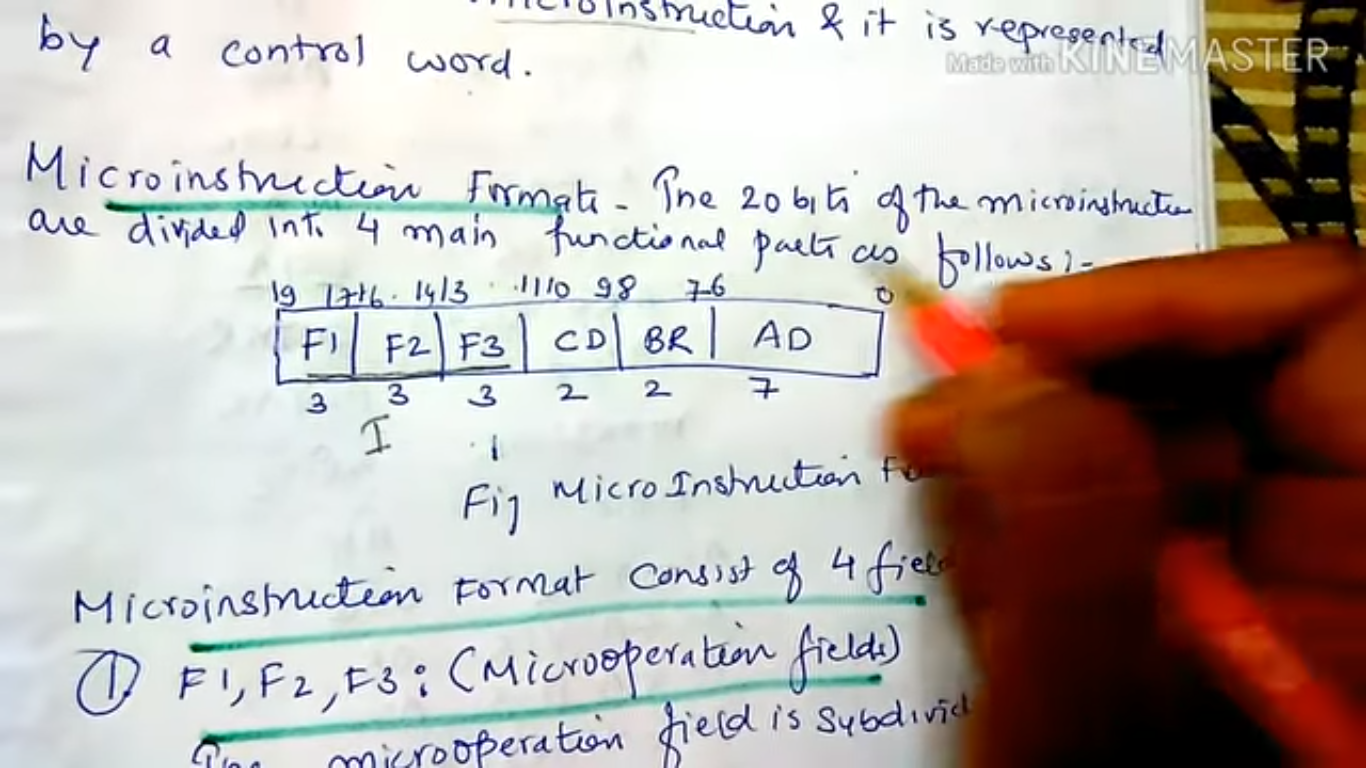 Microinstruction & it is represented
by a control word.
Made with KINEMASTER
Microinstruction Format - The 20 bits of the microinstruction
are divided into 4 main functional parts as follows :-
19 17 16 14 13 11 10 9 8 7 6 0
F1 F2 F3 CD BR AD
3 3 3 2 2 7
I 1
Fig Micro Instruction
Microinstruction Format consist of 4 field
① F1, F2, F3 : (Microoperation fields)
The microoperation field is subdivid